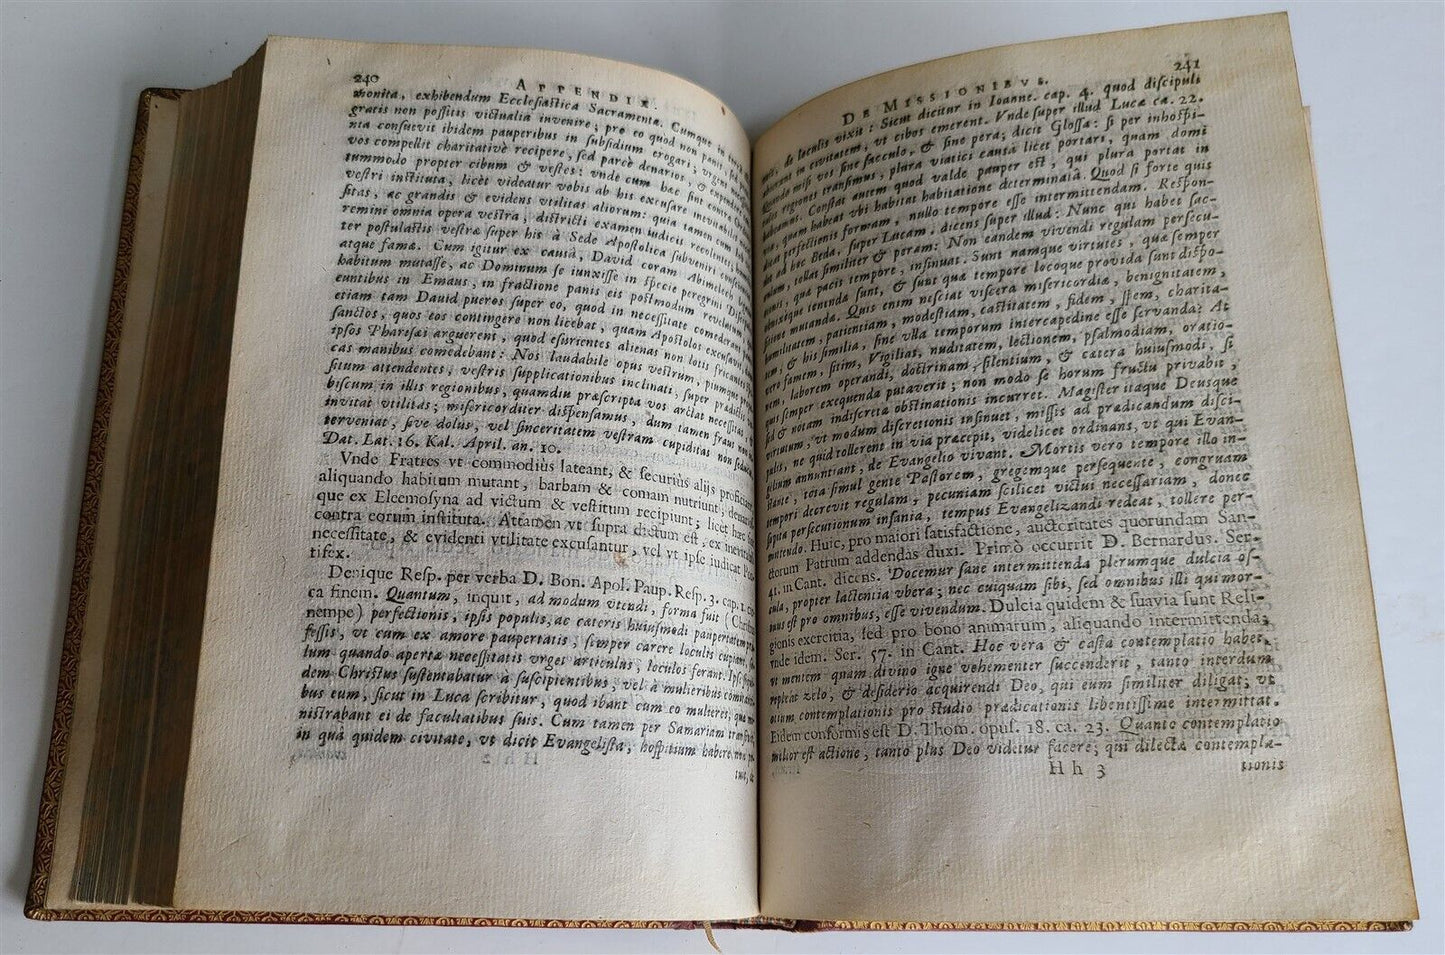 240 APPENDIX.
monita, exhibendum Ecclesiastica Sacramenta. Cumque in
gratis non possitis victualia invenire; pro eo quod non panis, sed
nta consuevit ibidem pauperibus in subsidium erogari; urgens
vos compellit charitativè recipere, sed parcè denarios, & expendere
tummodo propter cibum & vestes: vnde cum hæc sint contra
vestri instituta, licèt videatur vobis ab his excusare inevitabilis
sitas, ac grandis & evidens utilitas aliorum: quia tamen cum
remini omnia opera vestra, districti examen iudicis recolentes,
ter postulastis vestræ super his à Sede Apostolica subveniri
atque famæ. Cum igitur ex causâ, David coram Abimelech
habitum mutasse, ac Dominum se iunxisse in specie peregrini
euntibus in Emaus, in fractione panis eis postmodum revelatum
etiam tam Dauid pueros super eo, quod in necessitate comederant
sanctos, quos eos contingere non licebat, quam Apostolos
ipsos Pharesæi arguerent, quòd esurientes alienas non lotis fricantes
cas manibus comedebant: Nos laudabile opus vestrum, piumque
situm attendentes, vestris supplicationibus inclinati, super prædictis
biscum in illis regionibus, quamdiu præscripta vos arctat necessitas,
invitat utilitas; misericorditer dispensamus, dum tamen fraus non
terveniat, sive dolus, vel sinceritatem vestram cupiditas non
Dat. Lat. 16. Kal. April. an. 10.
Vnde Fratres vt commodiùs lateant, & securiùs alijs
aliquando habitum mutant, barbam & comam nutriunt,
que ex Eleemosyna ad victum & vestitum recipiunt; licet hæc
contra eorum instituta. Attamen vt supra dictum est, ex
necessitate, & evidenti vtilitate excusantur, vel vt ipse iudicat
tifex.
Denique Resp. per verba D. Bon. Apol. Paup. Resp. 3. cap. 1.
ca finem. Quantum, inquit, ad modum vtendi, forma fuit (
nempe) perfectionis, ipsis populis, ac cateris huiusmodi paupertatem
fessis, vt cum ex amore paupertatis, semper carere loculis cupiant,
lum quando apertæ necessitatis vrges articulus, loculos ferant.
dem Christus sustentabatur à suscipientibus, vel à mulieribus
bus eum, sicut in Luca scribitur, quod ibant cum eo mulieres, quæ
nistrabant ei de facultatibus suis. Cum tamen per Samariam
in quâ quidem civitate, vt dicit Evangelista, hospitium habere
H h 2
tuit, &
DE MISSIONIBVS. 241
de loculis vixit: Sicut dicitur in Ioanne. cap. 4. quod discipuli
in civitatem, vt cibos emerent. Vnde super illud Lucæ ca. 22.
Quando misi vos sine sacculo, & sine pera; dicit Glossa: si per inhospi-
regiones transimus, plura viatici causâ licet portari, quam domi
Constat autem quod valde pauper est, qui plura portat in
quam habeat vbi habitat habitatione determinatâ. Quod si forte quis
perfectionis formam, nullo tempore esse intermittendam. Respon-
ad hoc Beda, super Lucam, dicens super illud: Nunc qui habet sac-
tollat similiter & peram: Non eandem vivendi regulam persecu-
quâ pacis tempore, insinuat. Sunt namque virtutes, quæ semper
tenenda sunt, & sunt quæ tempore locoque provida sunt dispo-
mutandæ. Quis enim nesciat viscera misericordiæ, benignitatem,
humilitatem, patientiam, modestiam, castitatem, fidem, spem, charita-
& his similia, sine vlla temporum intercapedine esse servanda: At
famem, sitim, Vigilias, nuditatem, lectionem, psalmodiam, oratio-
nem, laborem operandi, doctrinam, silentium, & cætera huiusmodi, si
quis semper exequenda putaverit; non modo se horum fructu privabit,
sed & notam indiscretæ obstinationis incurret. Magister itaque Deusque
virtutum, vt modum discretionis insinuet, missis ad prædicandum disci-
pulis, ne quid tollerent in via præcepit, videlicet ordinans, vt qui Evan-
gelium annuntiant, de Evangelio vivant. Mortis vero tempore illo in-
stante, tota simul gente Pastorem, gregemque persequente, congruam
tempori decrevit regulam, pecuniam scilicet victui necessariam, donec
sopita persecutionum insania, tempus Evangelizandi redeat, tollere per-
mittendo. Huic, pro maiori satisfactione, auctoritates quorundam San-
ctorum Patrum addendas duxi. Primò occurrit D. Bernardus. Ser.
41. in Cant. dicens. Docemur sane intermittenda plerumque dulcia os-
cula, propter lactentia vbera; nec cuiquam sibi, sed omnibus illi qui mor-
tuus est pro omnibus, esse vivendum. Dulcia quidem & suavia sunt Reli-
gionis exercitia, sed pro bono animarum, aliquando intermittenda;
vnde idem. Ser. 57. in Cant. Hoc vera & casta contemplatio habet,
vt mentem quam divino igne vehementer succenderit, tanto interdum
repleat zelo, & desiderio acquirendi Deo, qui eum similiter diligat; vt
otium contemplationis pro studio prædicationis libentissime intermittat.
Eidem conformis est D. Thom. opus. 18. ca. 23. Quanto contemplatio
milior est actione, tanto plus Deo videtur facere; qui dilectæ contempla-
H h 3
tionis